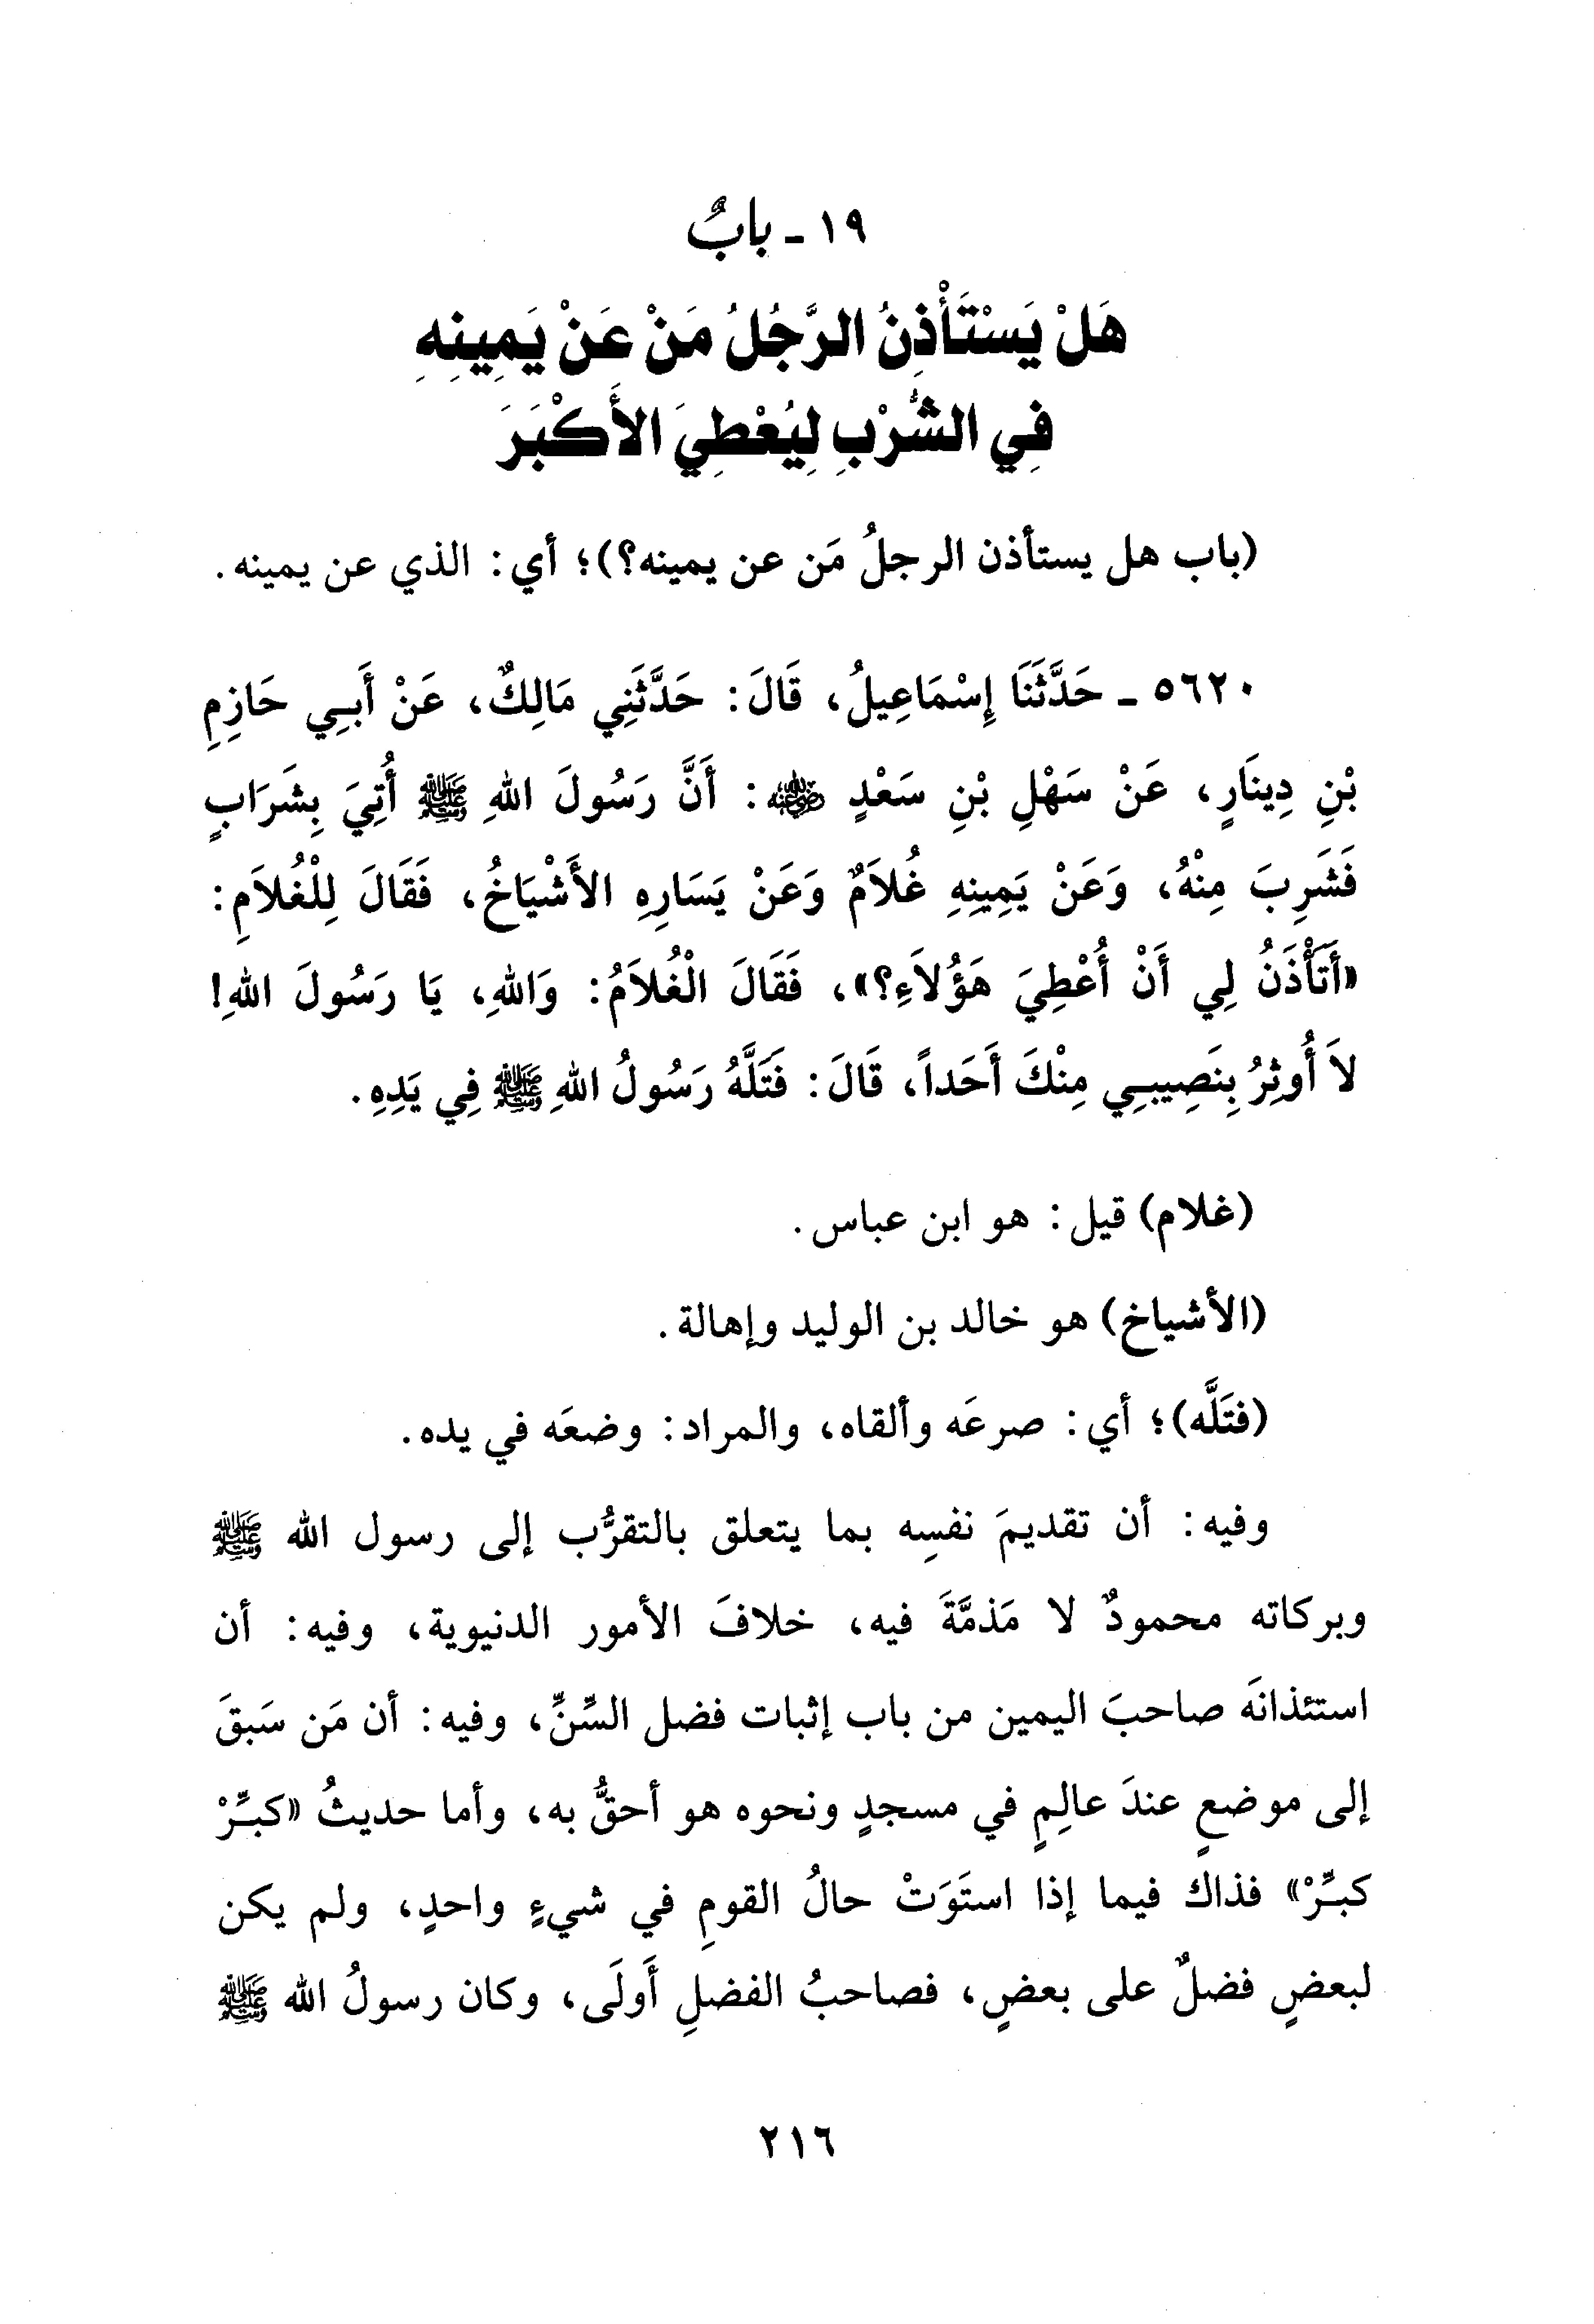 ١٩ - بابٌ
هَلْ يَسْتَأْذِنُ الرَّجُلُ مَنْ عَنْ يَمِينِهِ
فِي الشُّرْبِ لِيُعْطِيَ الأَكْبَرَ
(باب هل يستأذن الرجلُ مَن عن يمينه؟)؛ أي: الذي عن يمينه.
٥٦٢٠ - حَدَّثَنَا إِسْمَاعِيلُ، قَالَ: حَدَّثَنِي مَالِكٌ، عَنْ أَبِي حَازِمِ
بْنِ دِينَارٍ، عَنْ سَهْلِ بْنِ سَعْدٍ رضي الله عنه: أَنَّ رَسُولَ اللهِ ﷺ أُتِيَ بِشَرَابٍ
فَشَرِبَ مِنْهُ، وَعَنْ يَمِينِهِ غُلاَمٌ وَعَنْ يَسَارِهِ الأَشْيَاخُ، فَقَالَ لِلْغُلاَمِ:
«أَتَأْذَنُ لِي أَنْ أُعْطِيَ هَؤُلاَءِ؟»، فَقَالَ الْغُلاَمُ: وَاللهِ، يَا رَسُولَ اللهِ!
لاَ أُوثِرُ بِنَصِيبِي مِنْكَ أَحَداً، قَالَ: فَتَلَّهُ رَسُولُ اللهِ ﷺ فِي يَدِهِ.
(غلام) قيل: هو ابن عباس.
(الأشياخ) هو خالد بن الوليد وإهالة.
(فتَلَّه)؛ أي: صرعَه وألقاه، والمراد: وضعَه في يده.
وفيه: أن تقديمَ نفسِه بما يتعلق بالتقرُّب إلى رسول الله ﷺ
وبركاته محمودٌ لا مَذمَّةَ فيه، خلافَ الأمور الدنيوية، وفيه: أن
استئذانَه صاحبَ اليمين من باب إثبات فضل السِّنِّ، وفيه: أن مَن سَبقَ
إلى موضعٍ عندَ عالِمٍ في مسجدٍ ونحوه هو أحقُّ به، وأما حديثُ «كبِّرْ
كبِّرْ» فذاك فيما إذا استَوَتْ حالُ القومِ في شيءٍ واحدٍ، ولم يكن
لبعضٍ فضلٌ على بعضٍ، فصاحبُ الفضلِ أَولَى، وكان رسولُ الله ﷺ
٢١٦